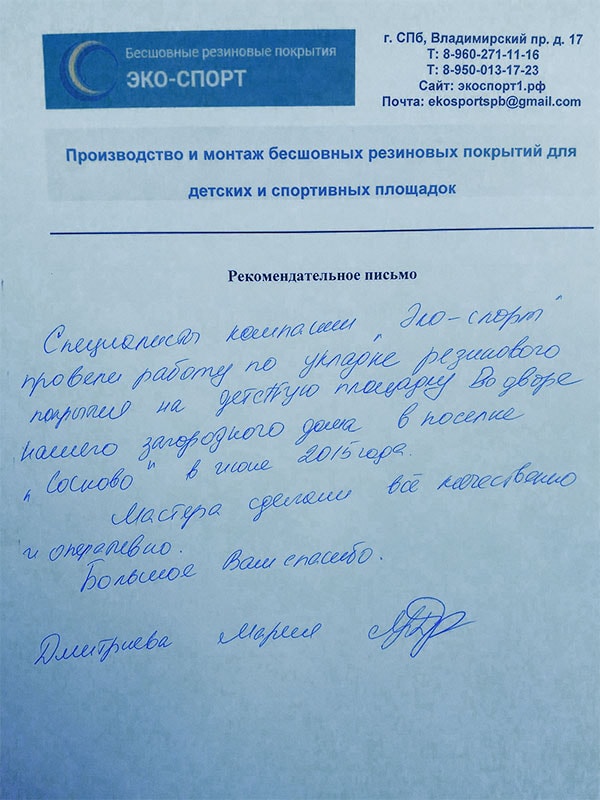 Бесшовные резиновые покрытия
ЭКО-СПОРТ
г. СПб, Владимирский пр. д. 17
Т: 8-960-271-11-16
Т: 8-950-013-17-23
Сайт: экоспорт1.рф
Почта: ekosportspb@gmail.com
Производство и монтаж бесшовных резиновых покрытий для
детских и спортивных площадок
Рекомендательное письмо
Специалисты компании "Эко-спорт"
провели работу по укладке резинового
покрытия на детскую площадку Во дворе
нашего загородного дома в поселке
"Сосново" в июне 2015 года.
Мастера сделали всё качественно
и оперативно.
Большое Вам спасибо.
Дмитриева Мария